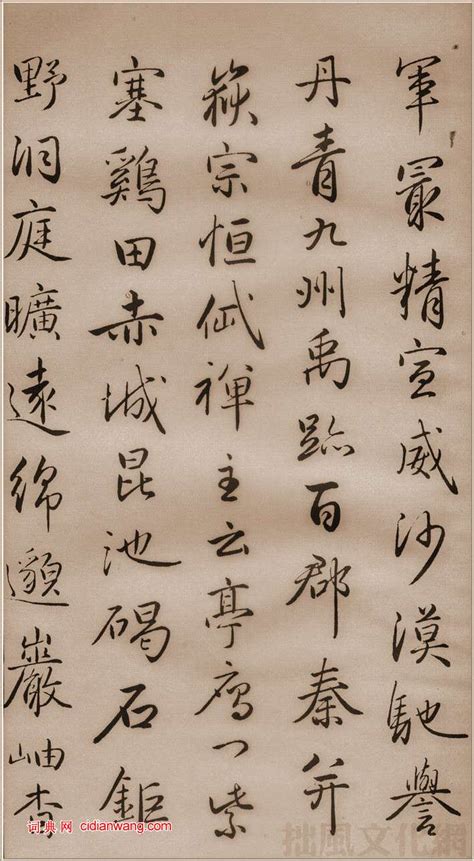 軍冣精宣威沙漠馳譽
丹青九州禹跡百郡秦并
嶽宗恒岱禪主云亭雁门紫
塞鷄田赤城昆池碣石鉅
野洞庭曠遠綿邈巖岫杳
词典网 cidianwang.com
拙風文化網